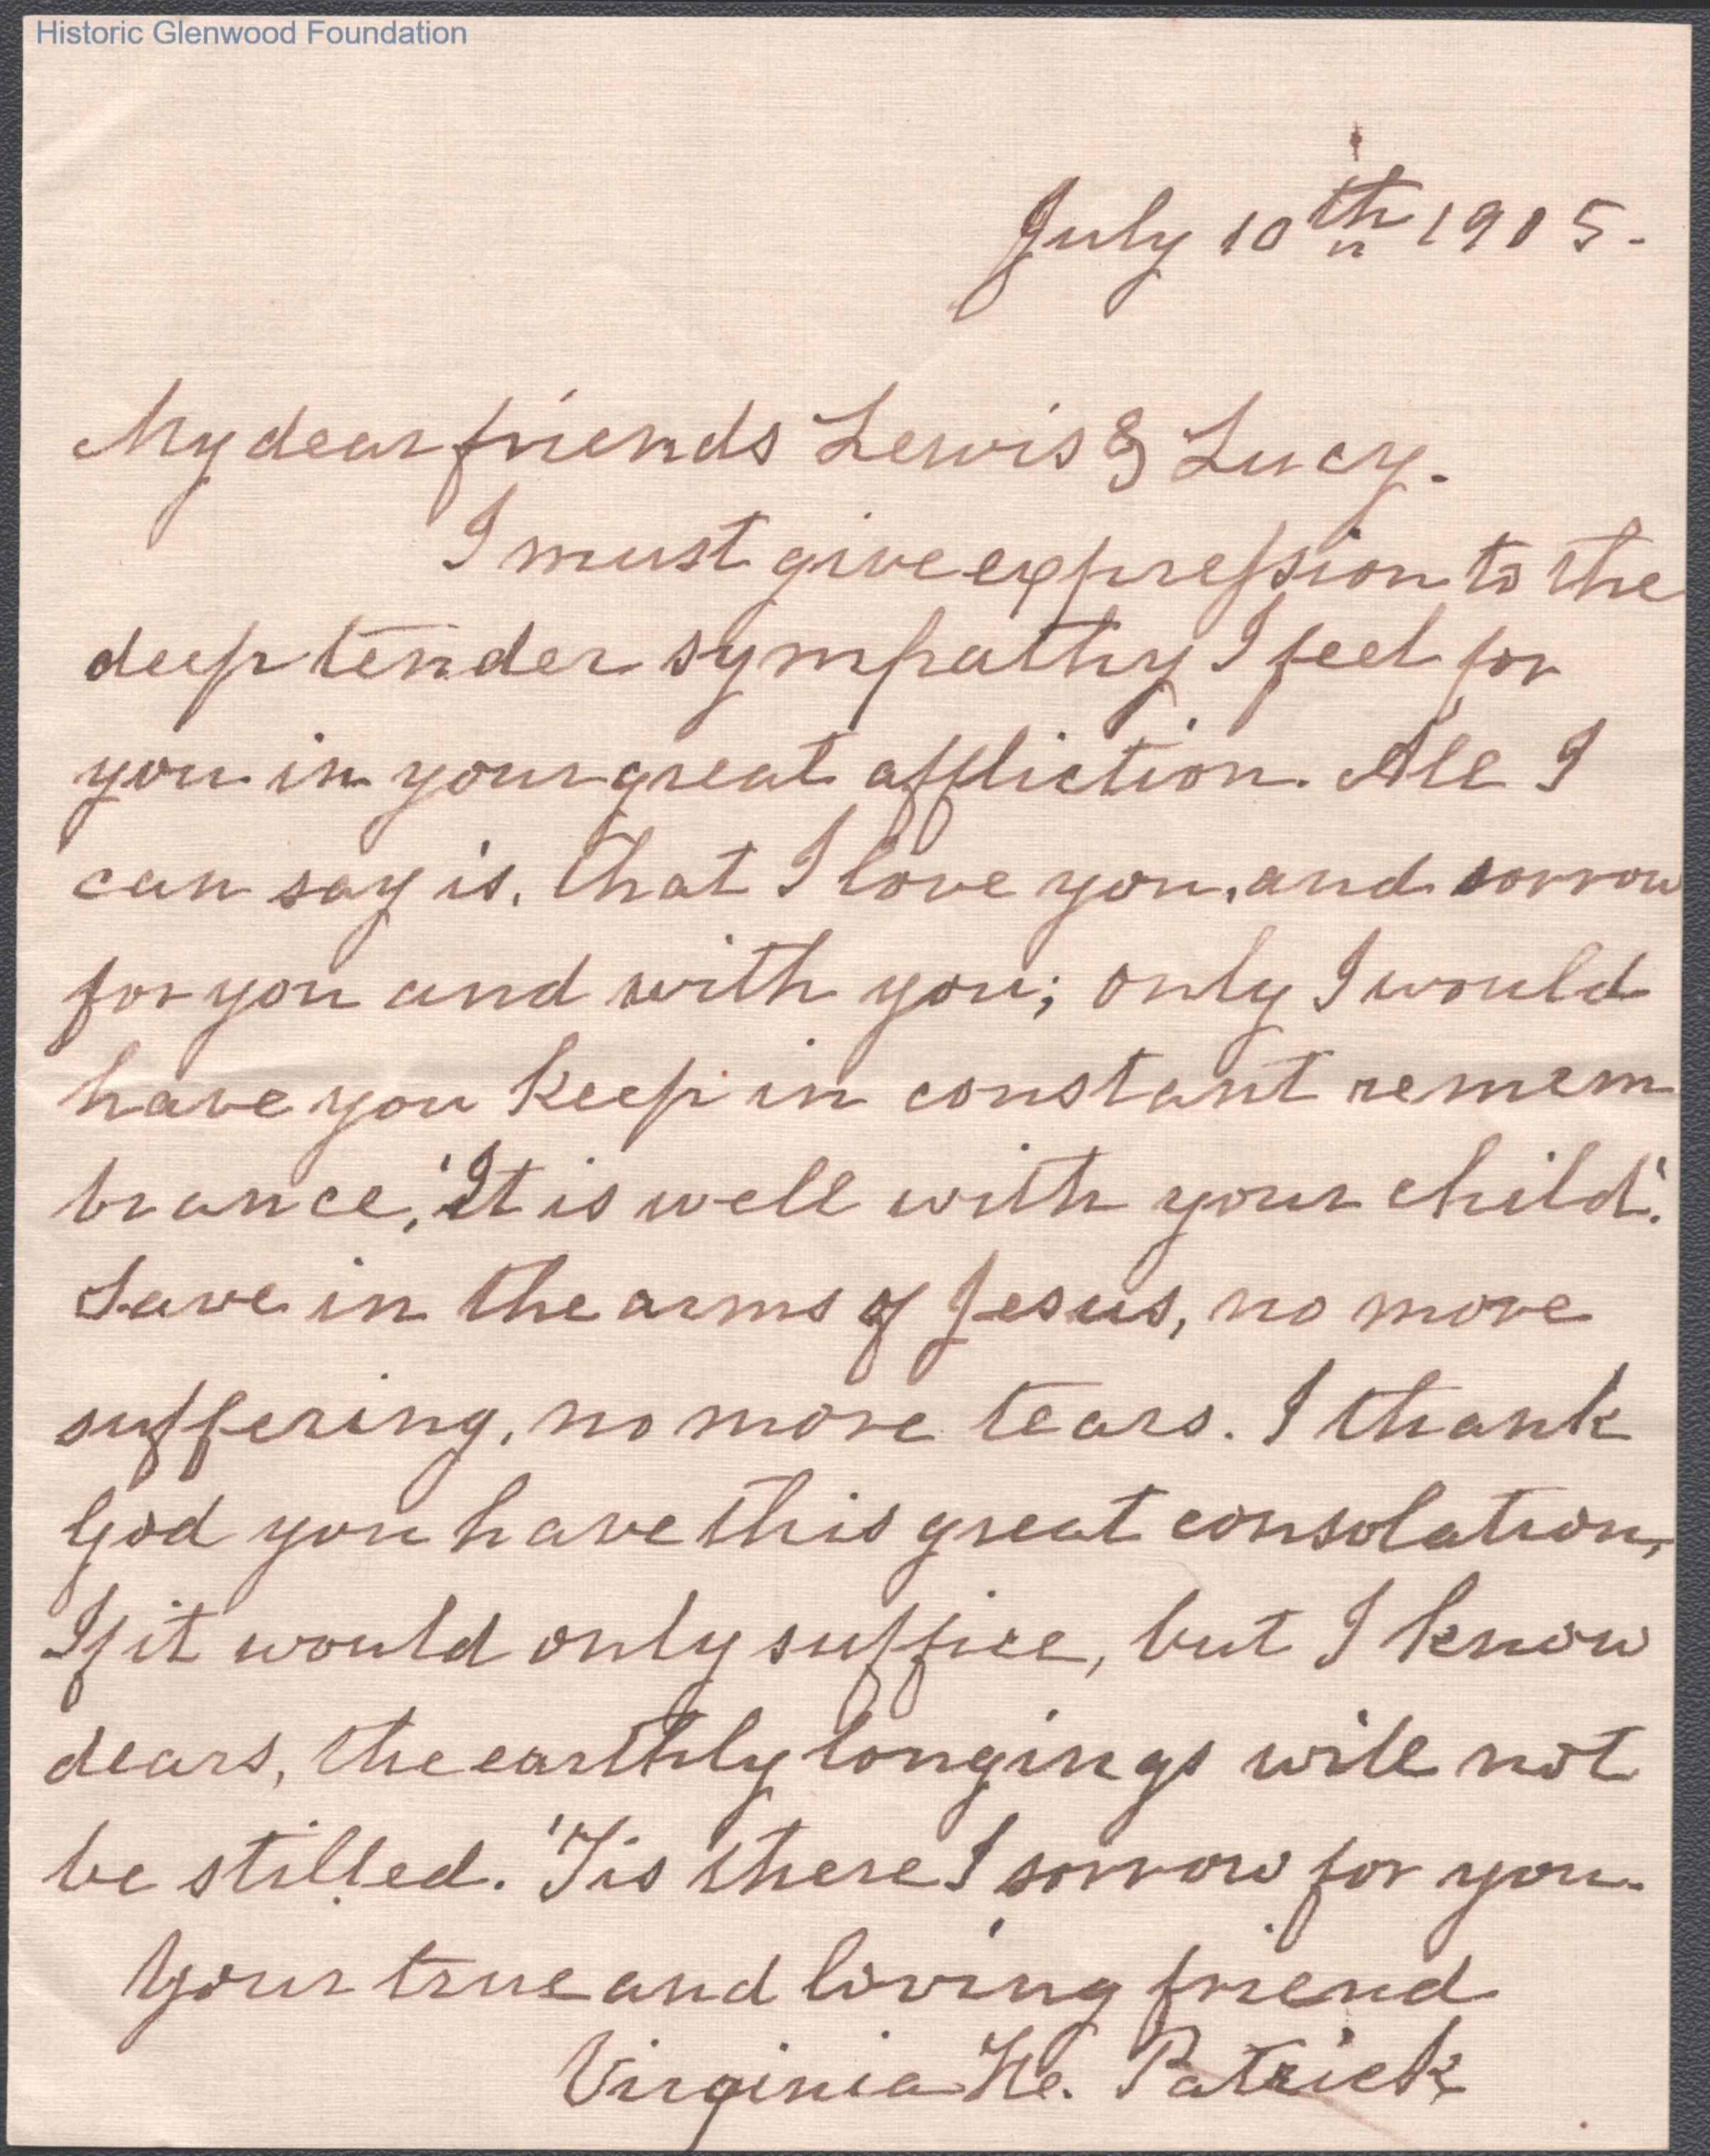 Historic Glenwood Foundation
July 10th 1905.
My dear friends Lewis & Lucy.
I must give expression to the
deep tender sympathy I feel for
you in your great affliction. All I
can say is, that I love you, and sorrow
for you and with you; only I would
have you keep in constant remem
brance, 'It is well with your child'.
Save in the arms of Jesus, no more
suffering, no more tears. I thank
God you have this great consolation,
If it would only suffice, but I know
dears, the earthly longings will not
be stilled. 'Tis there I sorrow for you.
Your true and loving friend
Virginia Patrick